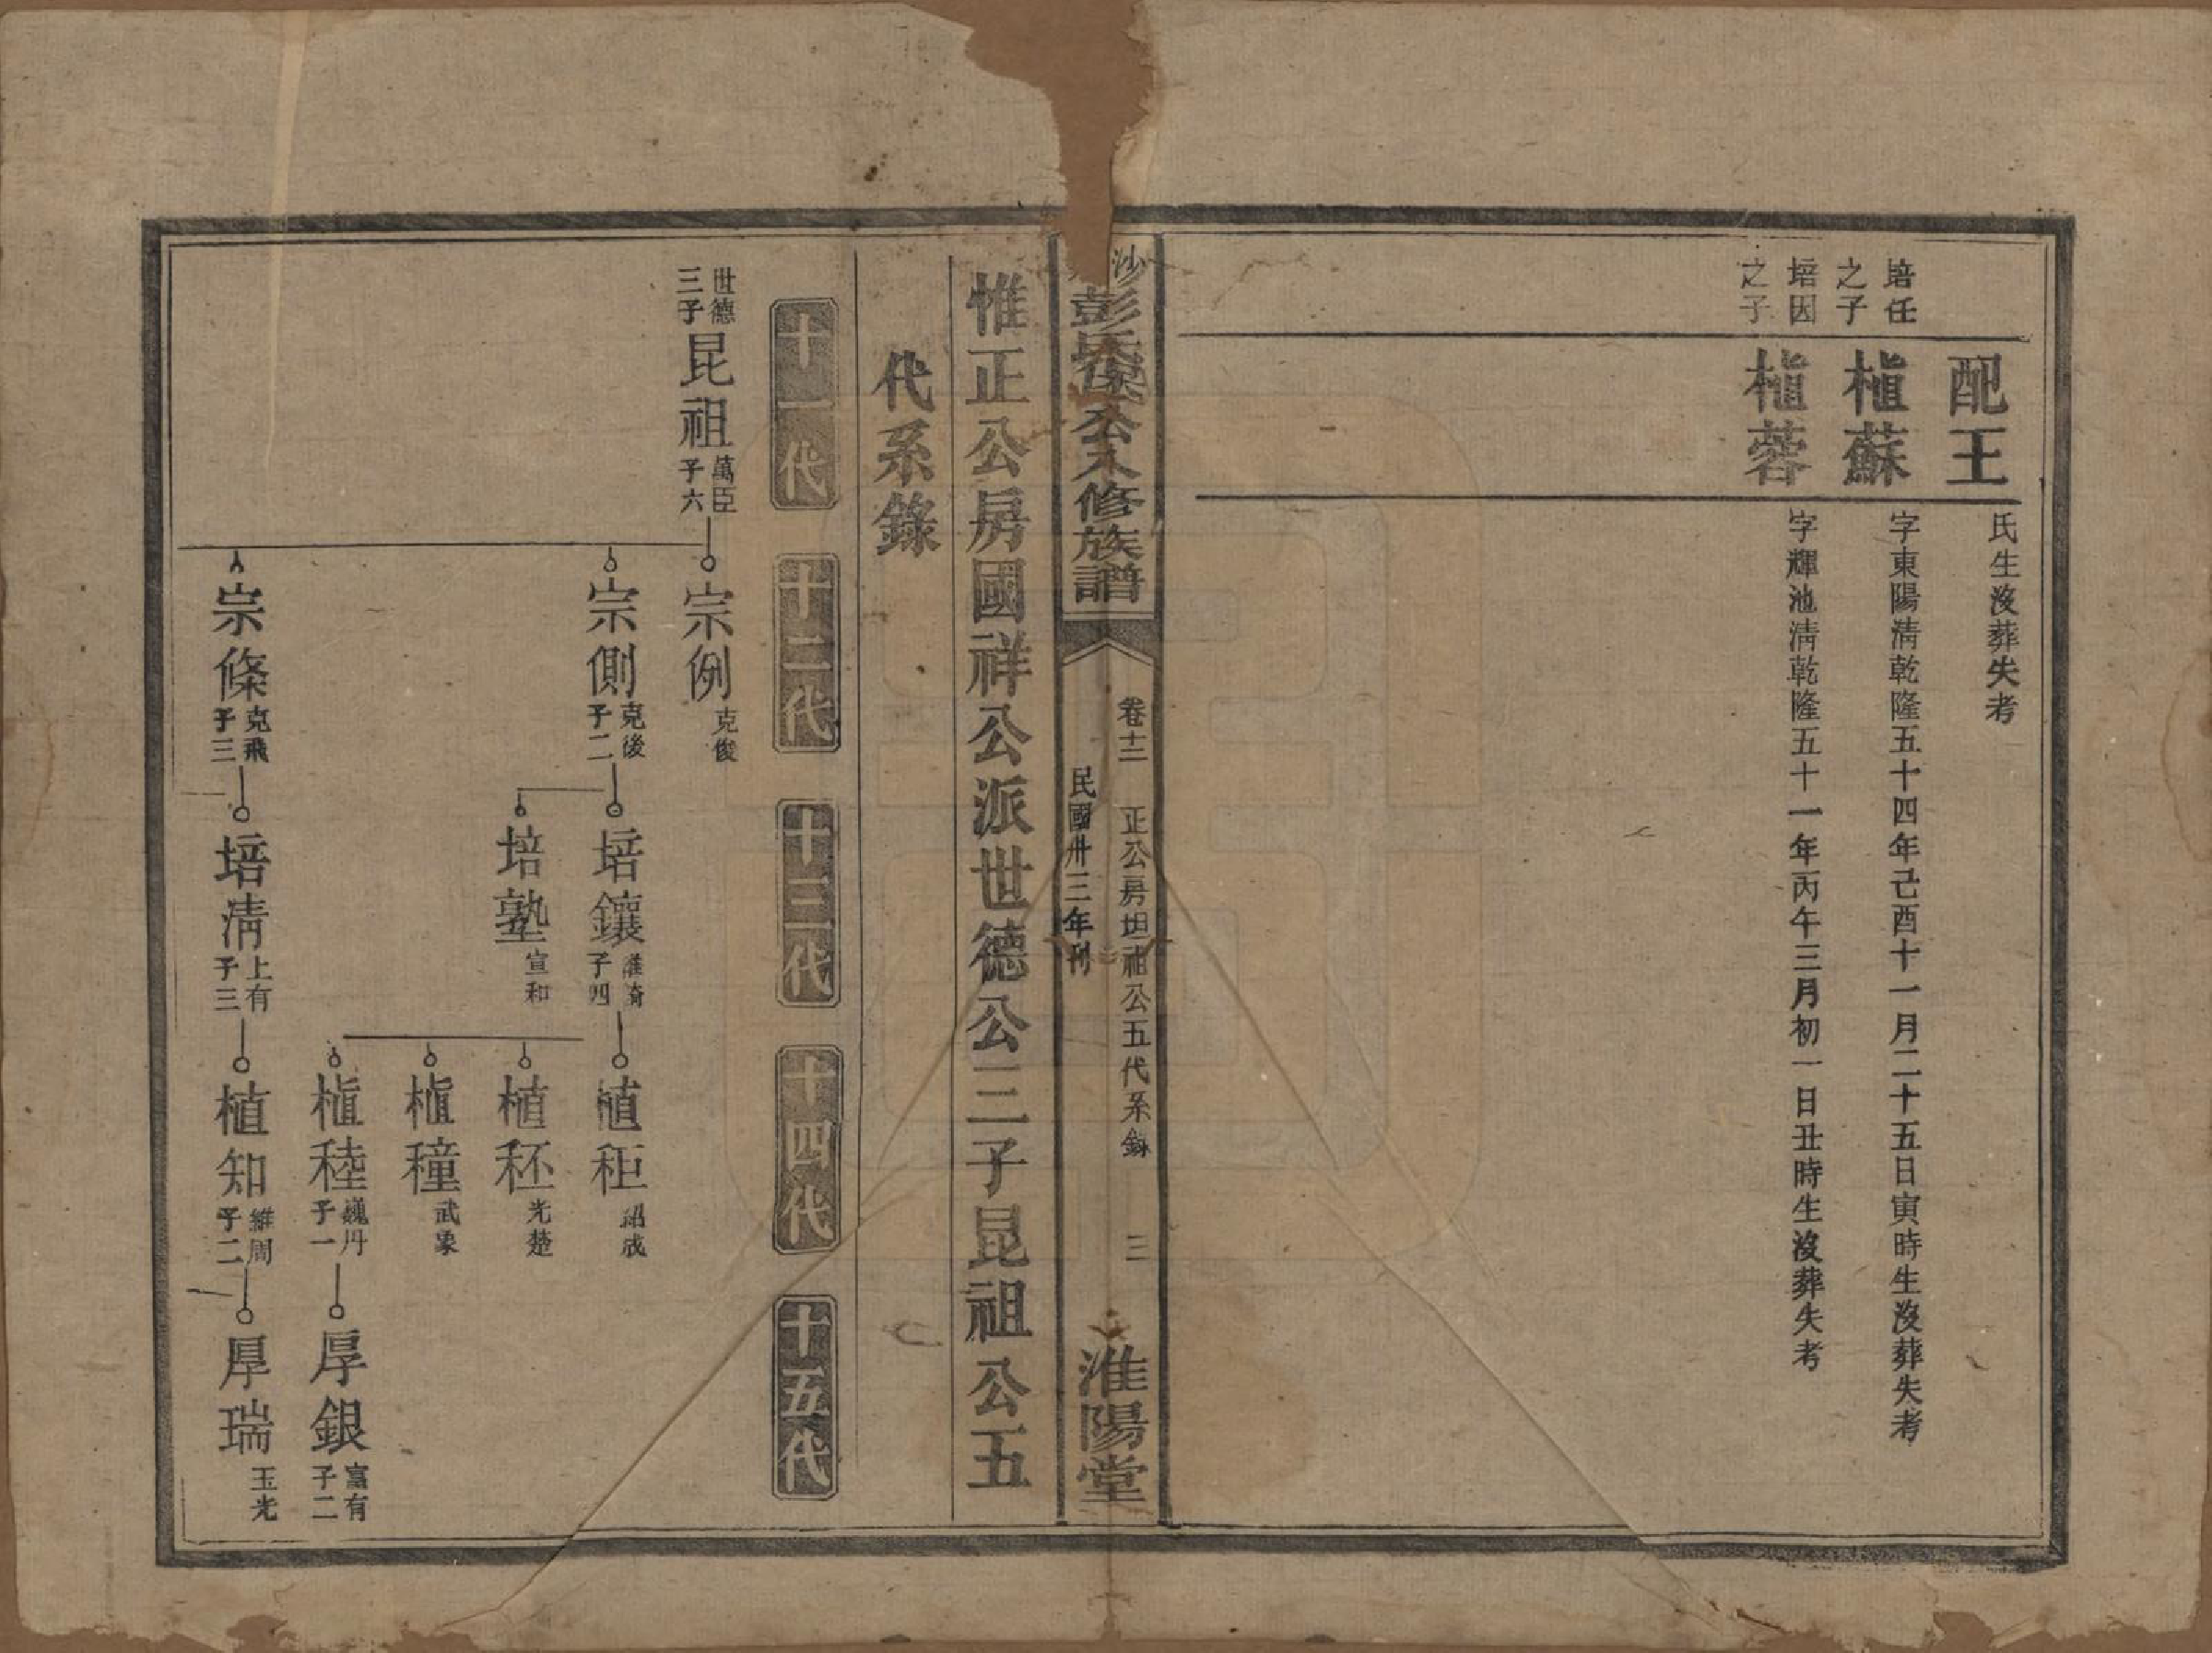 配王
氏生沒葬失考
培任之子
植蘇
字東陽清乾隆五十四年己酉十一月二十五日寅時生沒葬失考
培因之子
植蓉
字輝池清乾隆五十一年丙午三月初一日丑時生沒葬失考
沙
彭氏公八修族譜
卷十二 正公房坦祖公五代系錄 三
民國卅三年刊
淮陽堂
惟正公房國祥公派世德公三子昆祖公五
代系錄
十一代
十二代
十三代
十四代
十五代
世德三子
昆祖
萬臣
子六
宗例
克俊
宗側
克後
子二
培鑲
子四
植秬
紹成
植秠
光楚
植穜
武象
植稑
巍丹
子一
厚銀
富有
子二
培塾
宣和
宗條
克飛
子三
培清
上有
子三
植知
維周
子二
厚瑞
玉光